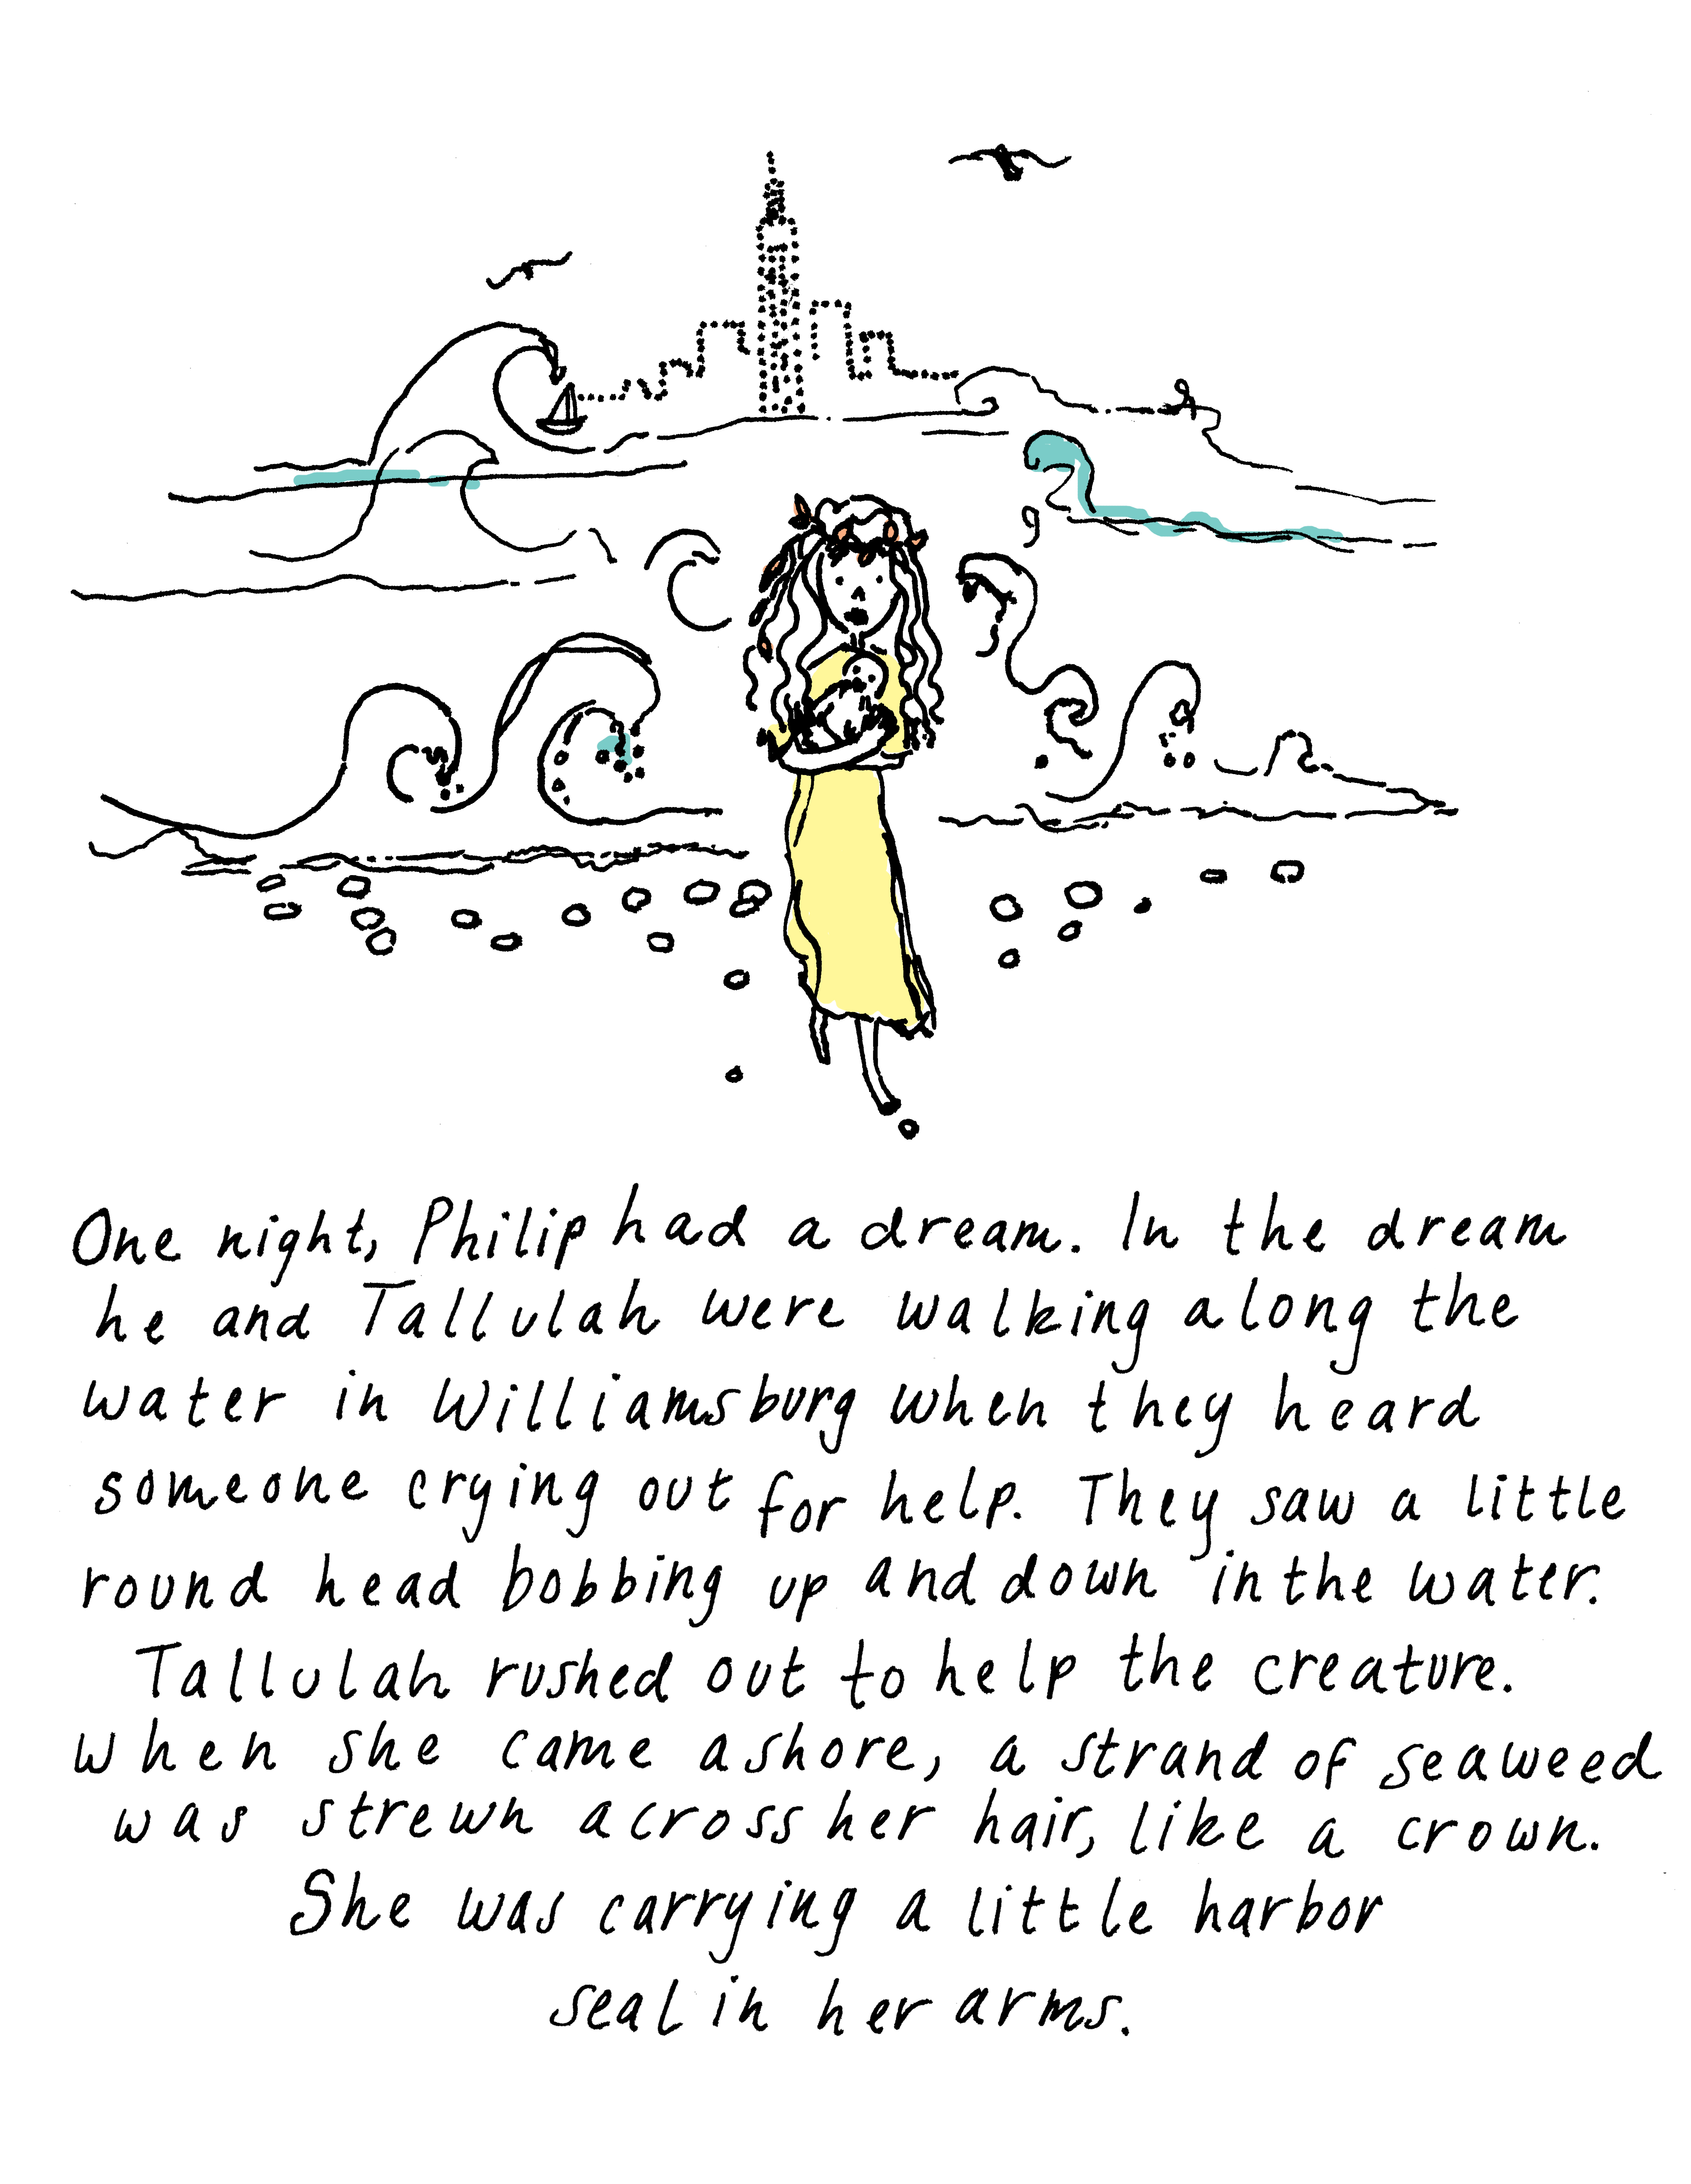 One night, Philip had a dream. In the dream
he and Tallulah were walking along the
water in Williamsburg when they heard
someone crying out for help. They saw a little
round head bobbing up and down in the water.
Tallulah rushed out to help the creature.
When she came ashore, a strand of seaweed
was strewn across her hair, like a crown.
She was carrying a little harbor
seal in her arms.